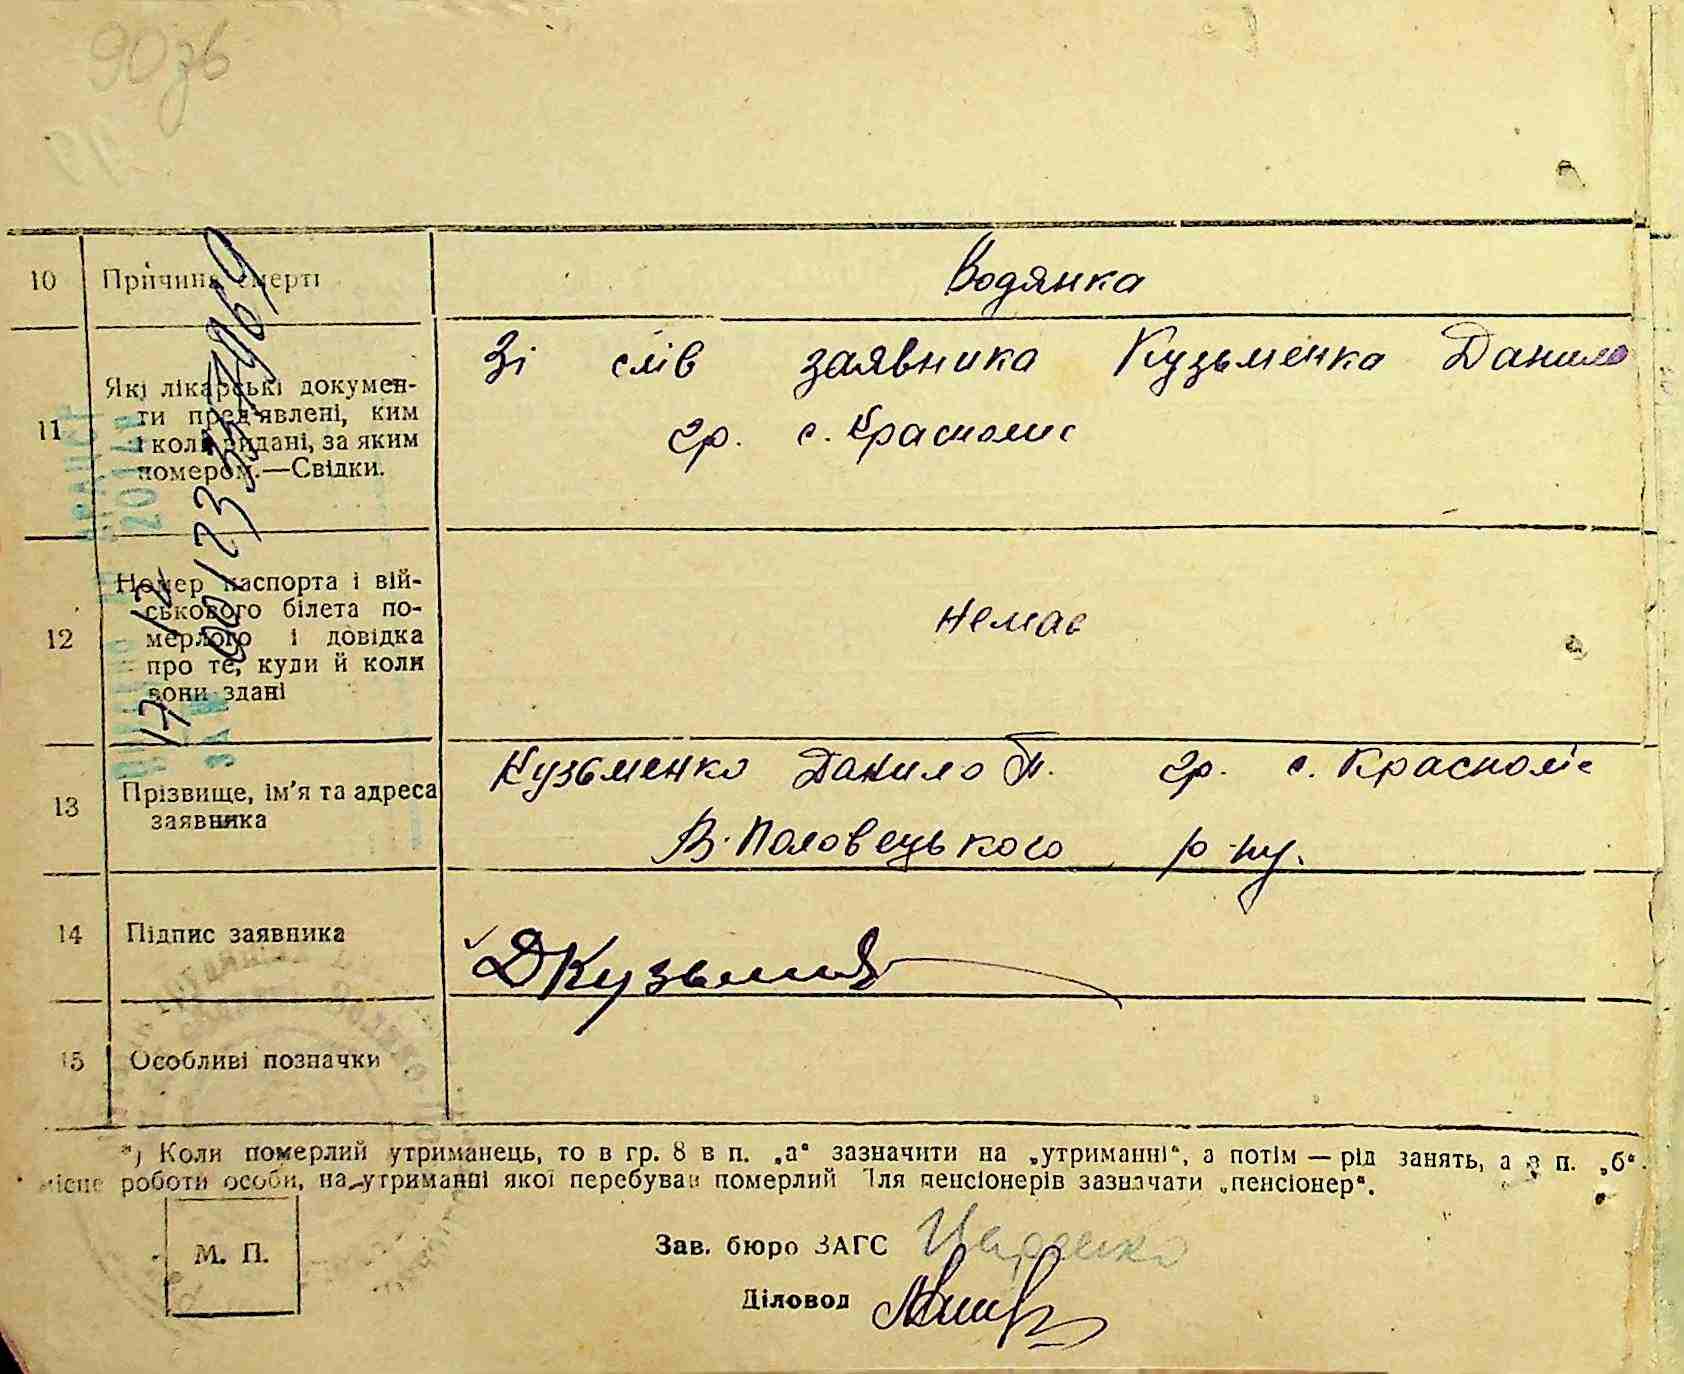 90зв
10 Причина смерті Водянка
11 Які лікарські докумен-
ти пред'явлені, ким
і коли видані, за яким
помером.—Свідки.
Зі слів заявника Кузьменка Данила
гр. с. Красноліс
12 Номер паспорта і вій-
ськового білета по-
мерлого і довідка
про те, куди й коли
вони здані
Немає
13 Прізвище, ім'я та адреса
заявника
Кузьменко Данило П. гр. с. Красноліс
В. Половецького р-ну.
14 Підпис заявника ДКузьмен
15 Особливі позначки
*) Коли померлий утриманець, то в гр. 8 в п. „а“ зазначити на „утриманні“, а потім — рід занять, а в п. „б“.
місце роботи особи, на утриманні якої перебував померлий Для пенсіонерів зазначати „пенсіонер“.
М. П.
Зав. бюро ЗАГС
Діловод